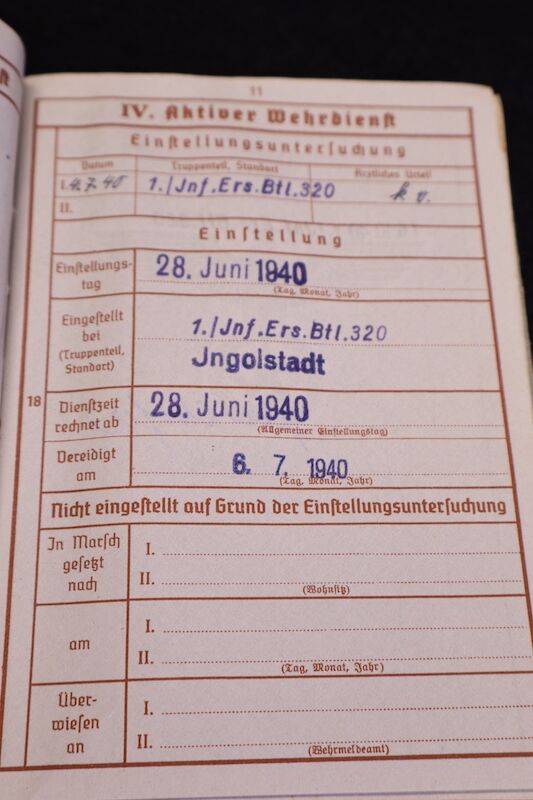 11
IV. Aktiver Wehrdienst
Einstellungsuntersuchung
Datum Truppenteil, Standort Ärztliches Urteil
I. 4.7.40 1./Jnf.Ers.Btl.320 k.v.
II.
Einstellung
Einstellungs-
tag
28. Juni 1940
(Tag, Monat, Jahr)
Eingestellt
bei
(Truppenteil,
Standort)
1./Jnf.Ers.Btl.320
Jngolstadt
18
Dienstzeit
rechnet ab
28. Juni 1940
(Allgemeiner Einstellungstag)
Vereidigt
am
6. 7. 1940
(Tag, Monat, Jahr)
Nicht eingestellt auf Grund der Einstellungsuntersuchung
In Marsch
gesetzt
nach
I.
II.
(Wohnsitz)
am
I.
II.
(Tag, Monat, Jahr)
Über-
wiesen
an
I.
II.
(Wehrmeldeamt)